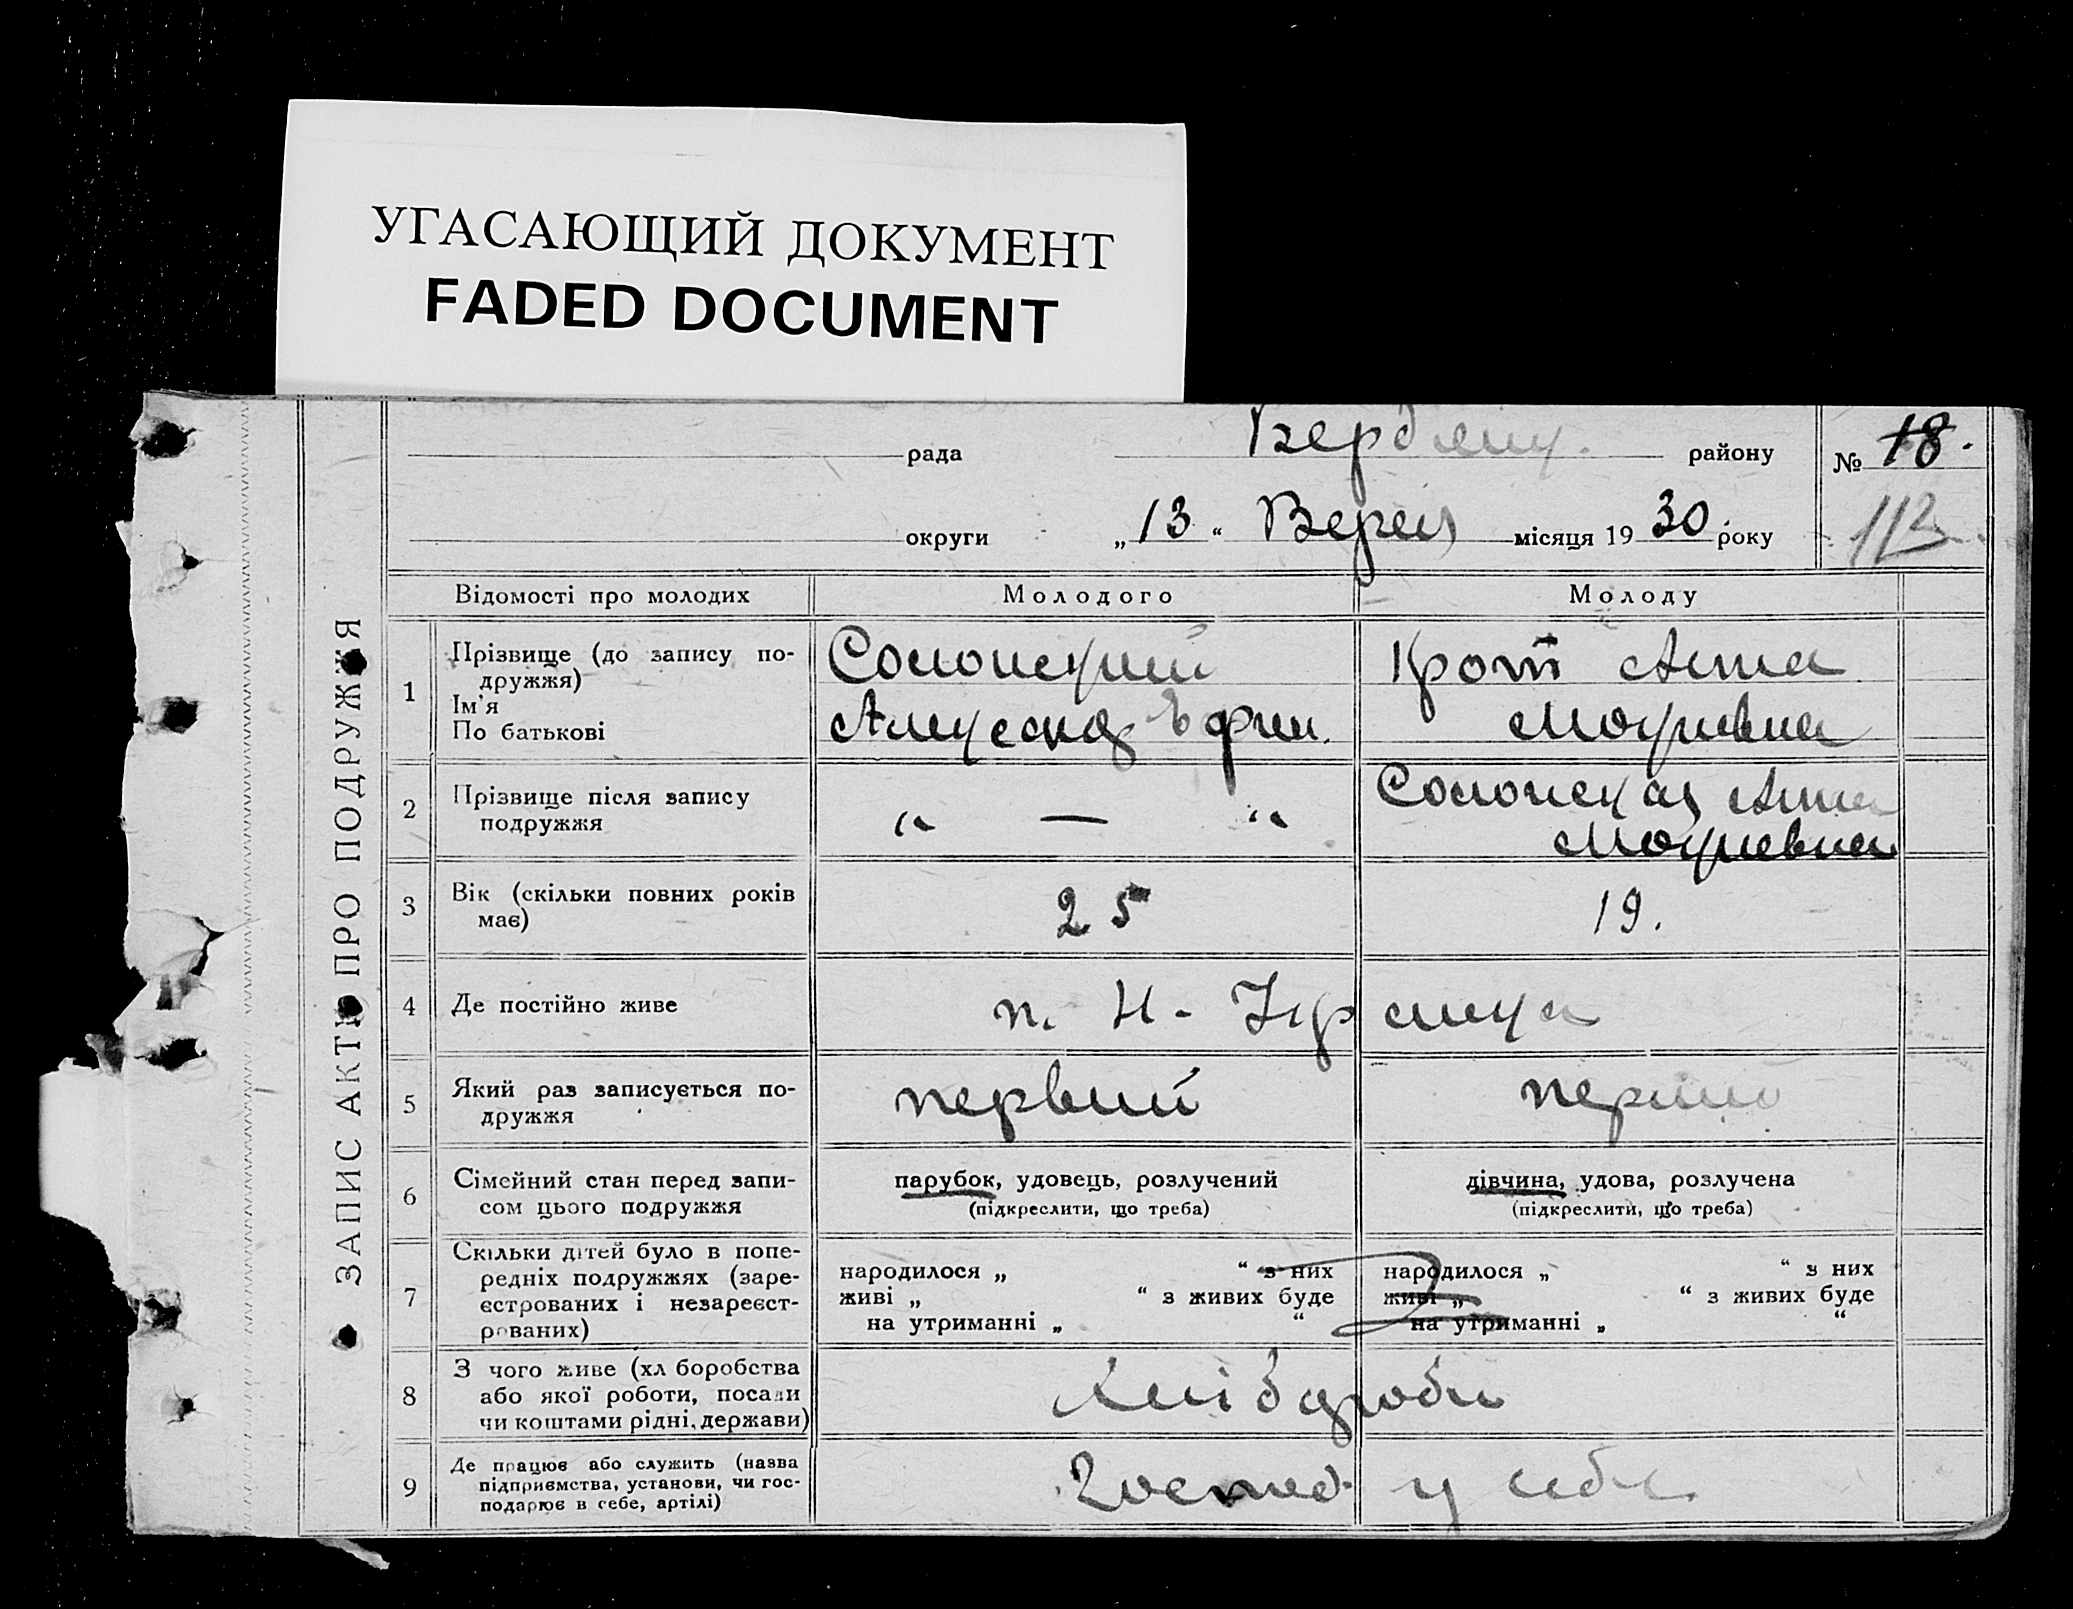 УГАСАЮЩИЙ ДОКУМЕНТ
FADED DOCUMENT
ЗАПИС АКТУ ПРО ПОДРУЖЖЯ
рада Бердянц. району № 18.
округи „13“ Верес місяця 1930. року 113
Відомості про молодих Молодого Молоду
1 Прізвище (до запису по-
дружжя)
Ім'я
По батькові
Солонский
Александ Ефим.
Крот Анна
Мокривна
2 Прізвище після запису
подружжя
“ — “
Солонская Анна
Мокриевна
3 Вік (скільки повних років
має)
25 19.
4 Де постійно живе
п. Н-
5 Який раз записується по-
дружжя
первий перший
6 Сімейний стан перед запи-
сом цього подружжя
парубок, удовець, розлучений
(підкреслити, що треба)
дівчина, удова, розлучена
(підкреслити, що треба)
7 Скільки дітей було в попе-
редніх подружжях (заре-
єстрованих і незареєст-
рованих)
народилося „ “ з них
живі „ “ з живих буде
на утриманні „ “
народилося „ “ з них
живі „ “ з живих буде
на утриманні „ “
8 З чого живе (хліборобства
або якої роботи, посади
чи коштами рідні, держави)
Хліборобы
9 Де працює або служить (назва
підприємства, установи, чи гос-
подарює в себе, артілі)
Господ. у себе